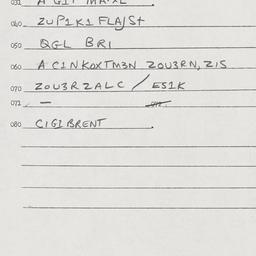 031 A GIT MA.XL .
040 ZUP1K1 FLAJSt
050 QGL BRI
060 A C1NKOXTM3N ZOU3RN, ZIS
070 ZOU3RZALC / ES1K
071 —
080 CIGIBRENT .